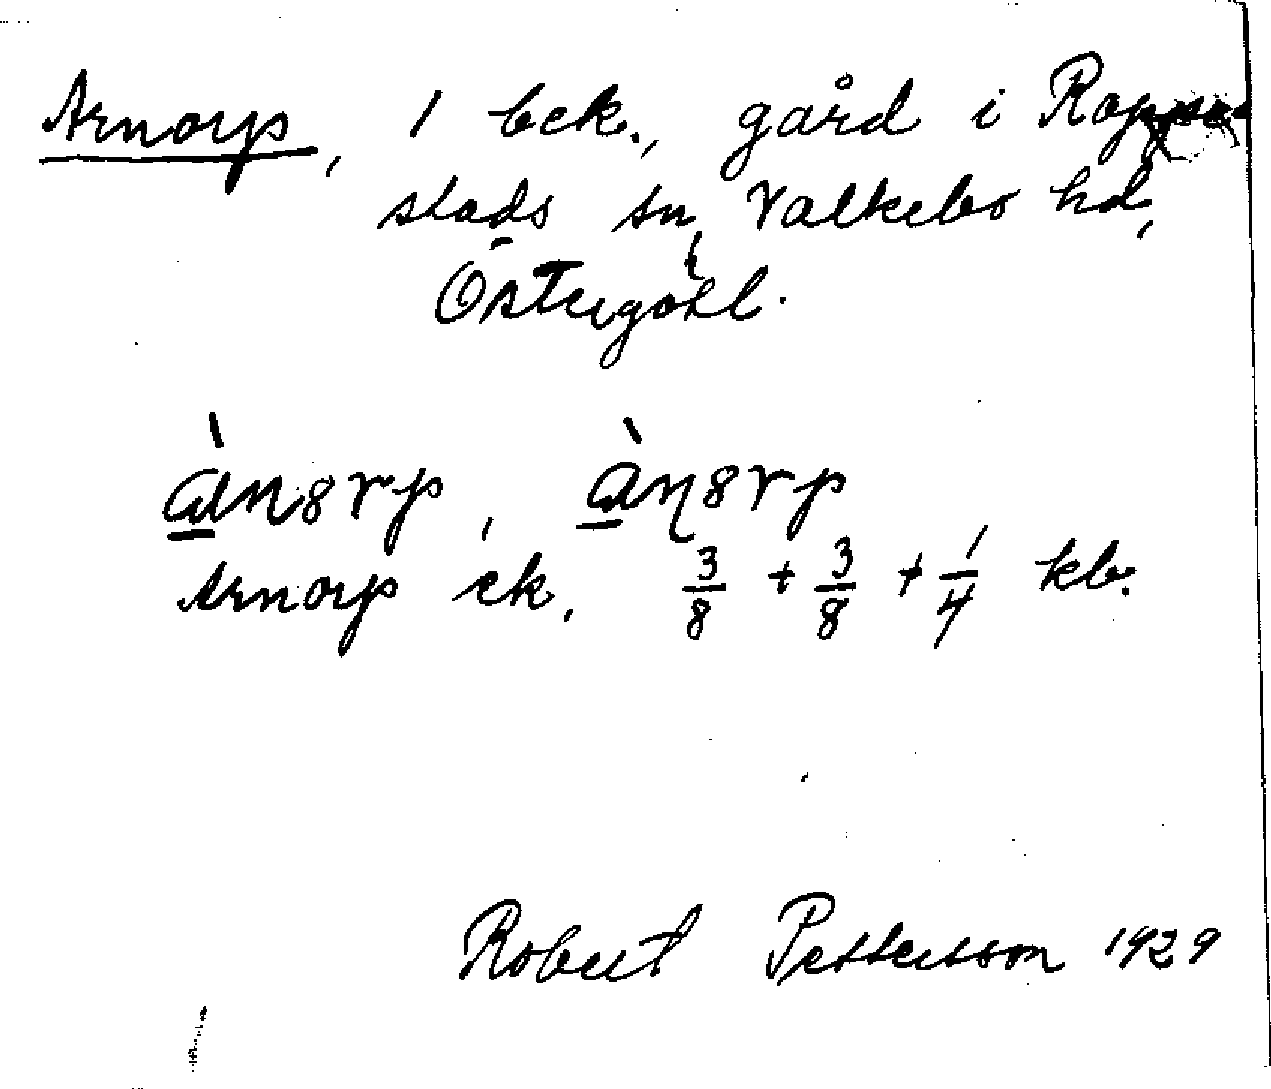 Arnorp, 1 bek., gård i Rappe-
stads sn, Valkebo hd,
Östergötl.
àn8rp, àŋ8rp
Arnorp ek. 3/8 + 3/8 + 1/4 kb.
Robert Pettersson 1929